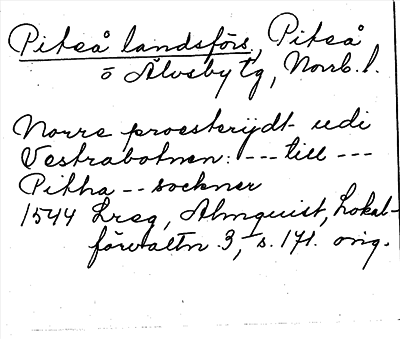 Piteå landsförs, Piteå
o Älvsby tg, Norrb. l.
Norre proesterijdt udi
Vestrabotnen: --- till ---
Pitha -- sockner
1544 Lreg, Almquist, Lokal-
förvaltn. 3, s. 171. orig.